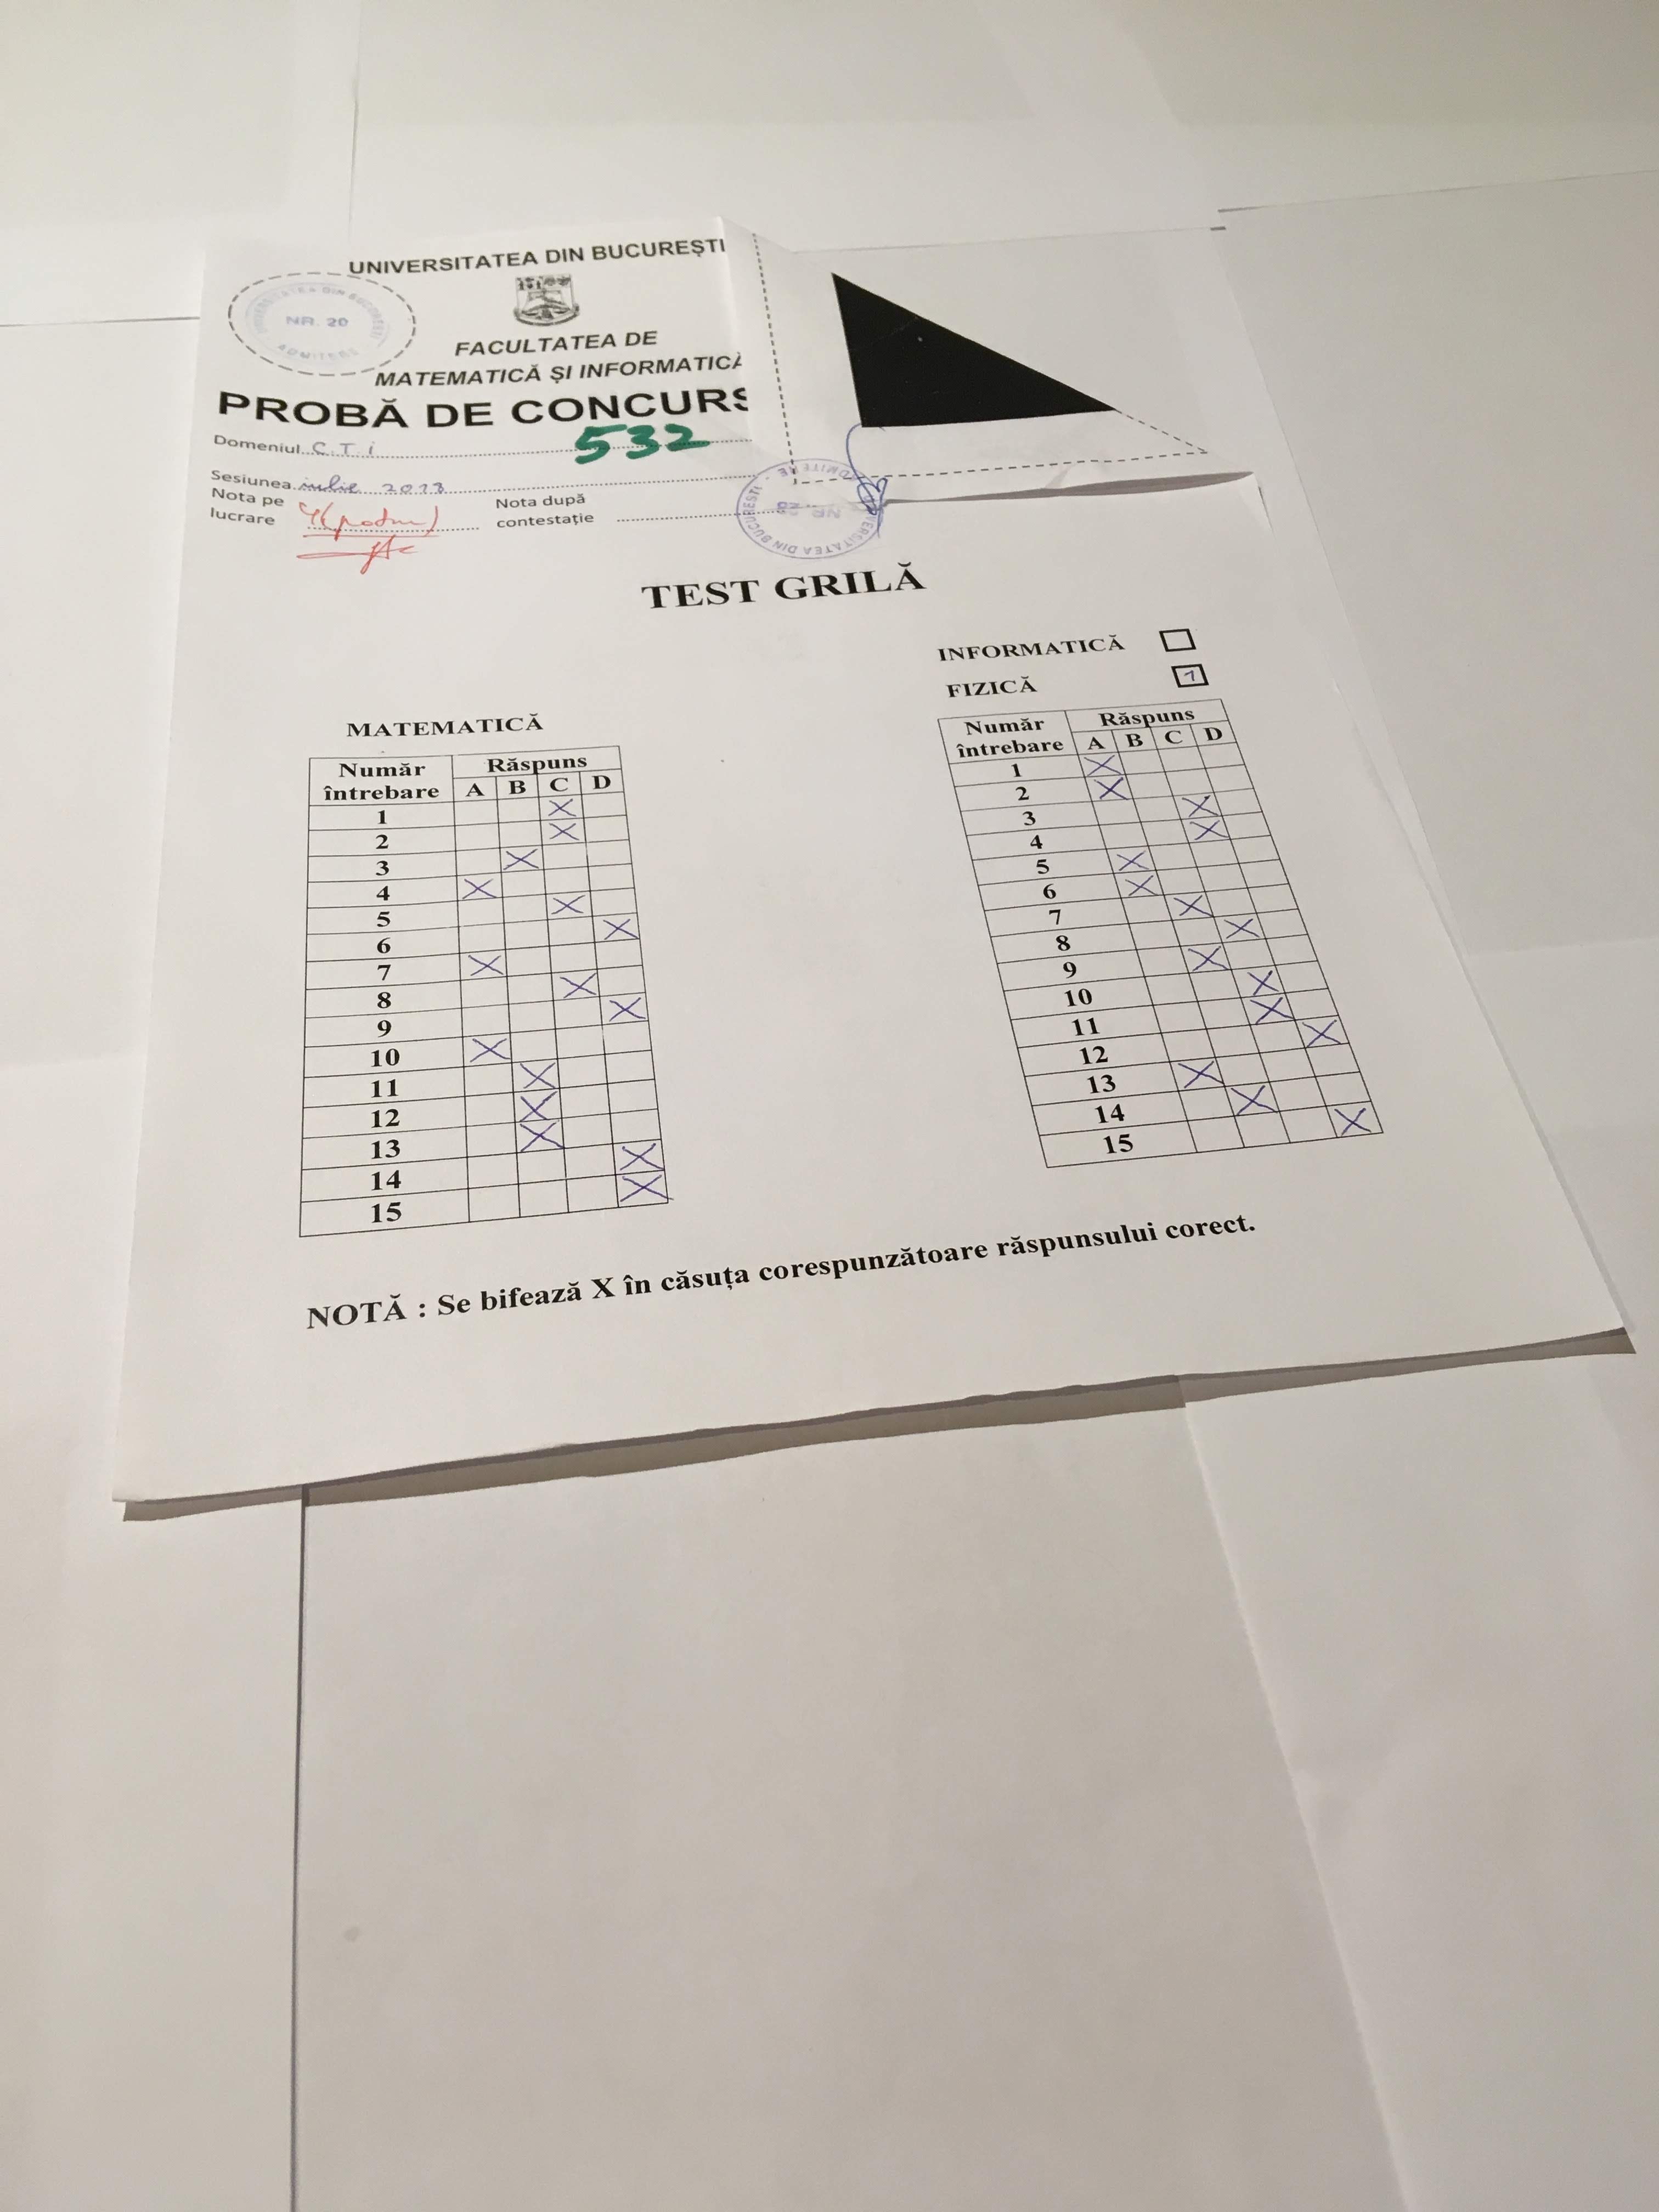 UNIVERSITATEA DIN BUCUREȘTI
NR. 20
ADMITERE
FACULTATEA DE
MATEMATICĂ ȘI INFORMATICĂ
PROBĂ DE CONCURS
Domeniul C.T.i 532
Sesiunea iulie 2013
Nota pe lucrare 4(patru)
Nota după contestație
UNIVERSITATEA DIN BUCUREȘTI - ADMITERE
NR. 20
TEST GRILĂ
INFORMATICĂ
FIZICĂ 1
MATEMATICĂ
Număr întrebare Răspuns
A B C D
1 X
2 X
3 X
4 X
5 X
6 X
7 X
8 X
9 X
10 X
11 X
12 X
13 X
14 X
15 X
Număr întrebare Răspuns
A B C D
1 X
2 X
3 X
4 X
5 X
6 X
7 X
8 X
9 X
10 X
11 X
12 X
13 X
14 X
15 X
NOTĂ : Se bifează X în căsuța corespunzătoare răspunsului corect.